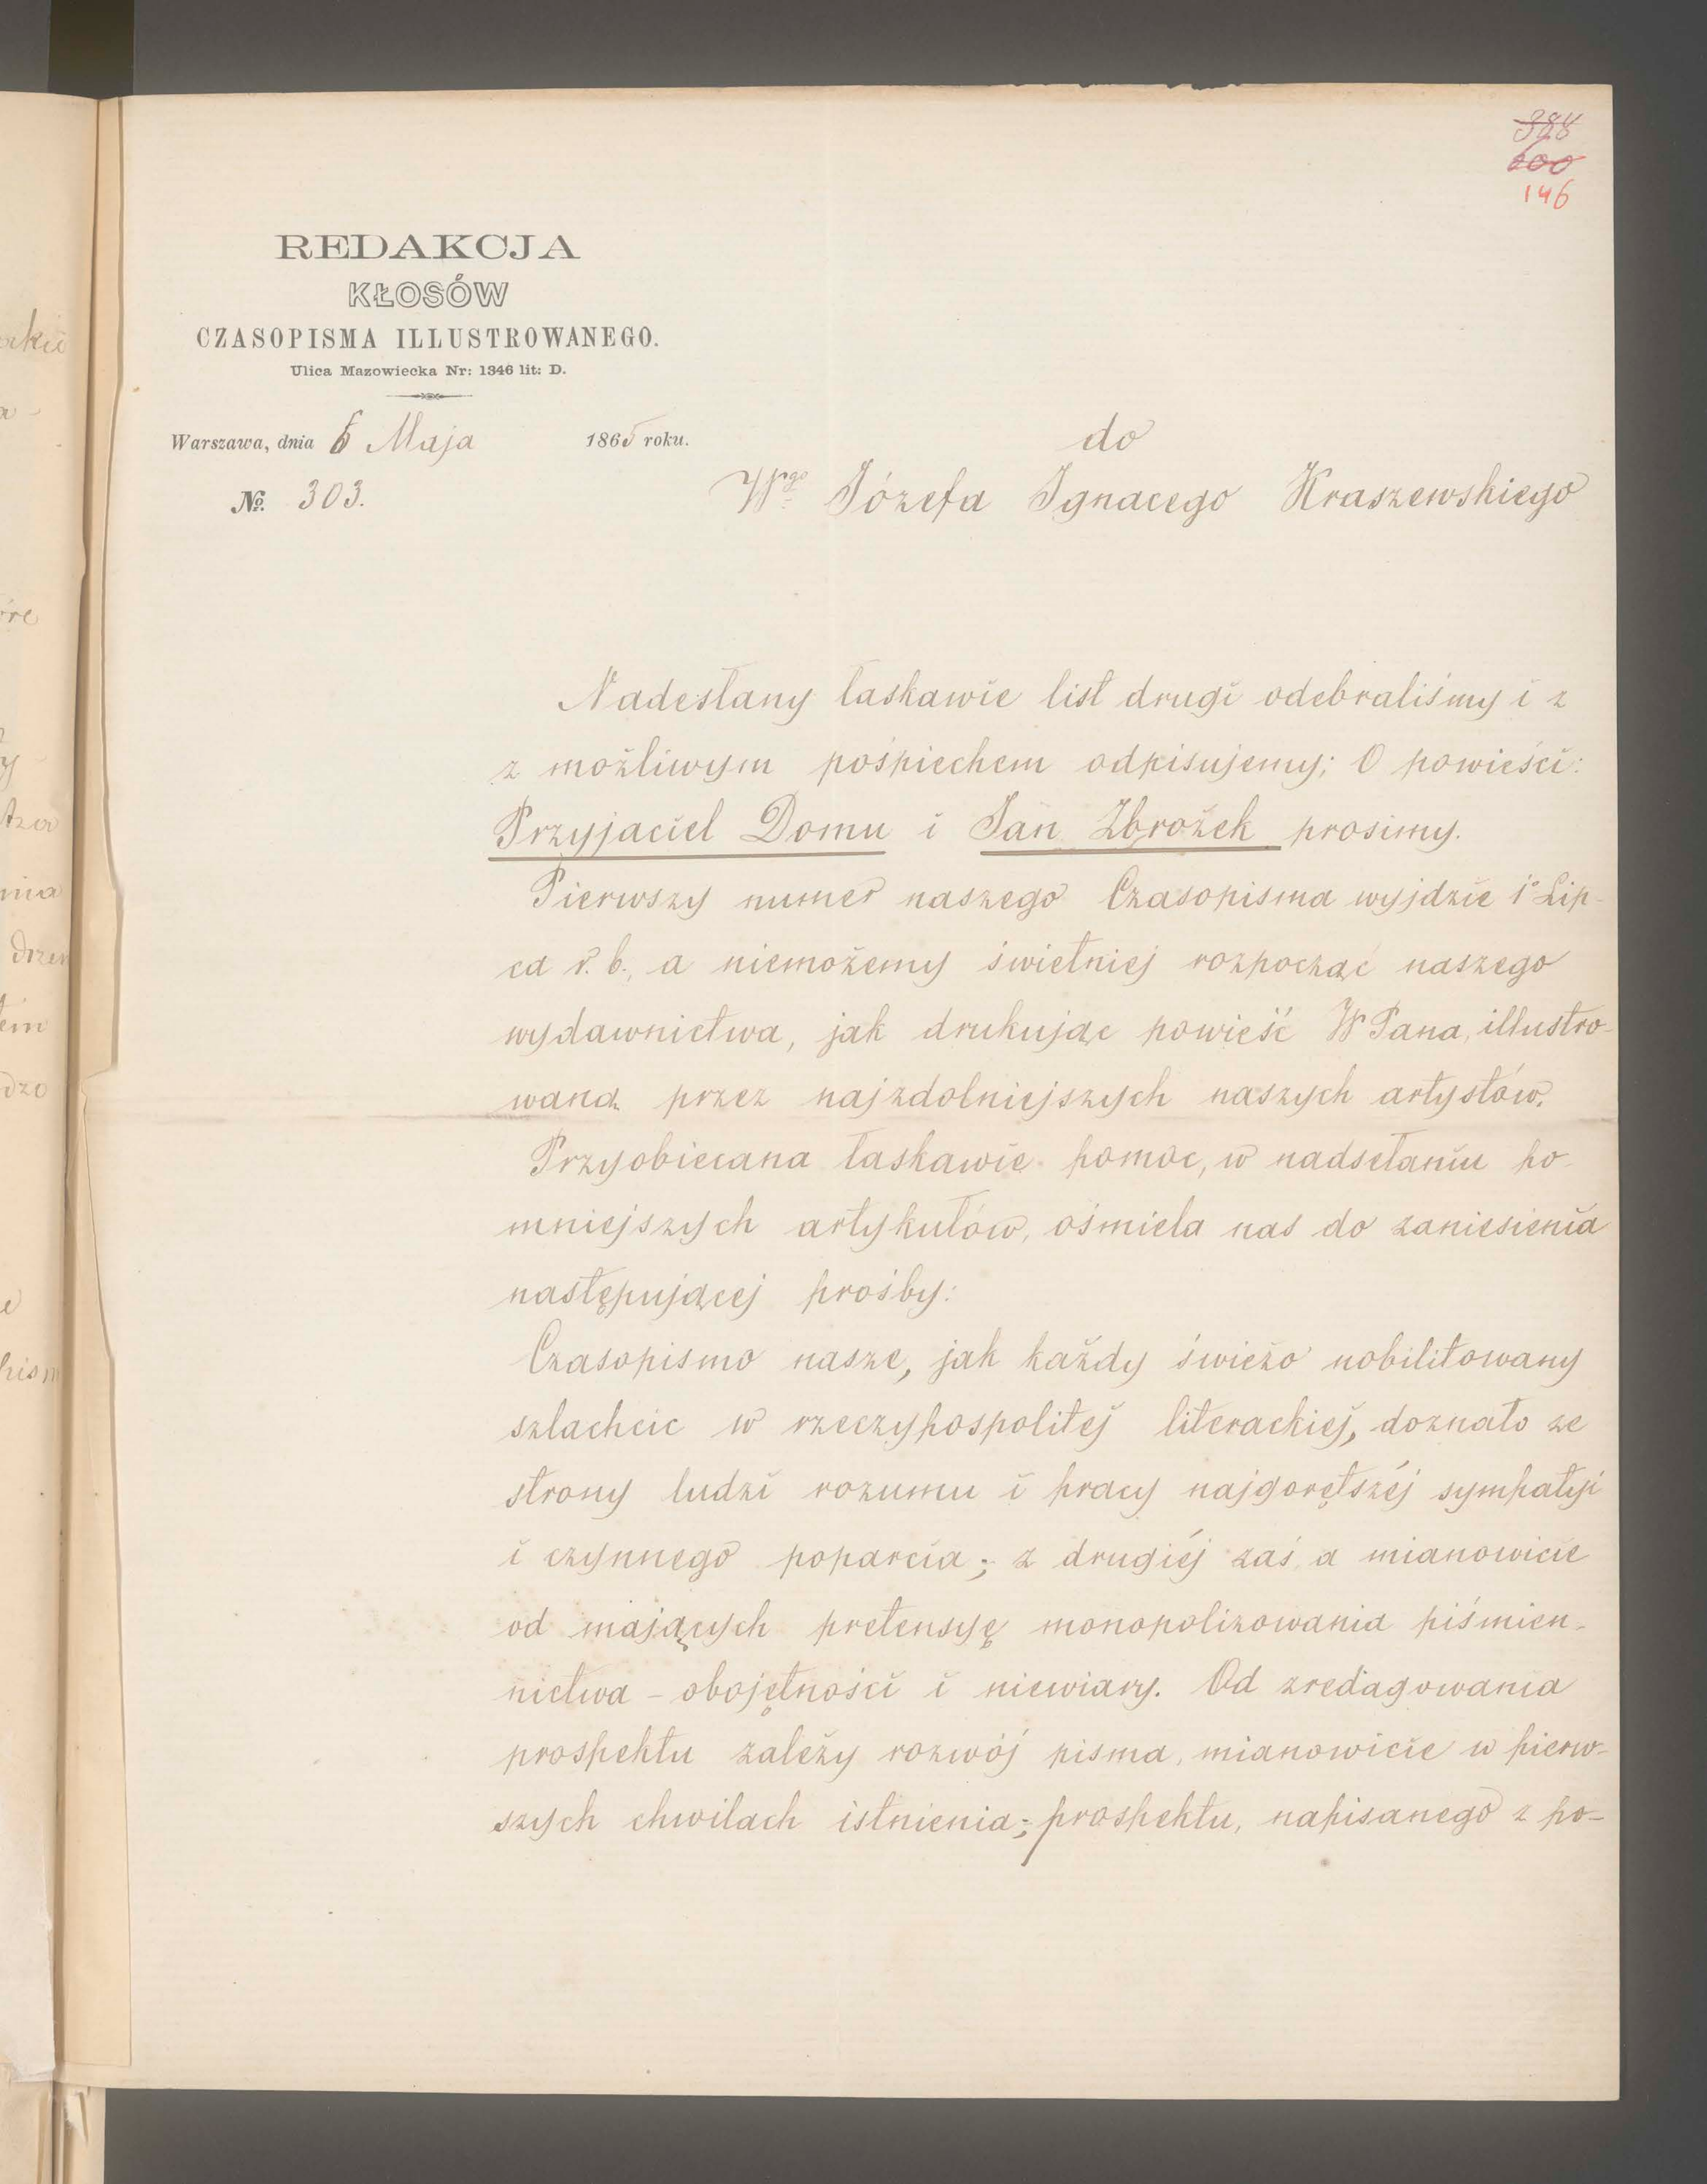 146
REDAKCJA
KŁOSÓW
CZASOPISMA ILLUSTROWANEGO.
Ulica Mazowiecka Nr: 1346 lit: D.
Warszawa, dnia 6 Maja 1865 roku.
№ 303.
do
Wgo Józefa Ignacego Kraszewskiego
Nadesłany łaskawie list drugi odebraliśmy i z
z możliwym pośpiechem odpisujemy; O powieści:
Przyjaciel Domu i Jan Zbrożek prosimy.
Pierwszy numer naszego Czasopisma wyjdzie 1o Lip-
ca r. b., a niemożemy świetniej rozpocząć naszego
wydawnictwa, jak drukując powieść W Pana, illustro-
waną przez najzdolniejszych naszych artystów.
Przyobiecana łaskawie pomoc, w nadsełaniu po-
mniejszych artykułów, ośmiela nas do zaniesienia
następującej prośby:
Czasopismo nasze, jak każdy świeżo nobilitowany
szlachcic w rzeczypospolitej literackiej, doznało ze
strony ludzi rozumu i pracy najgorętszéj sympatyi
i czynnego poparcia; z drugiéj zaś a mianowicie
od mających pretensyę monopolizowania piśmien-
nictwa – obojętności i niewiary. Od zredagowania
prospektu zależy rozwój pisma, mianowicie w pierw-
szych chwilach istnienia; prospektu, napisanego z po-